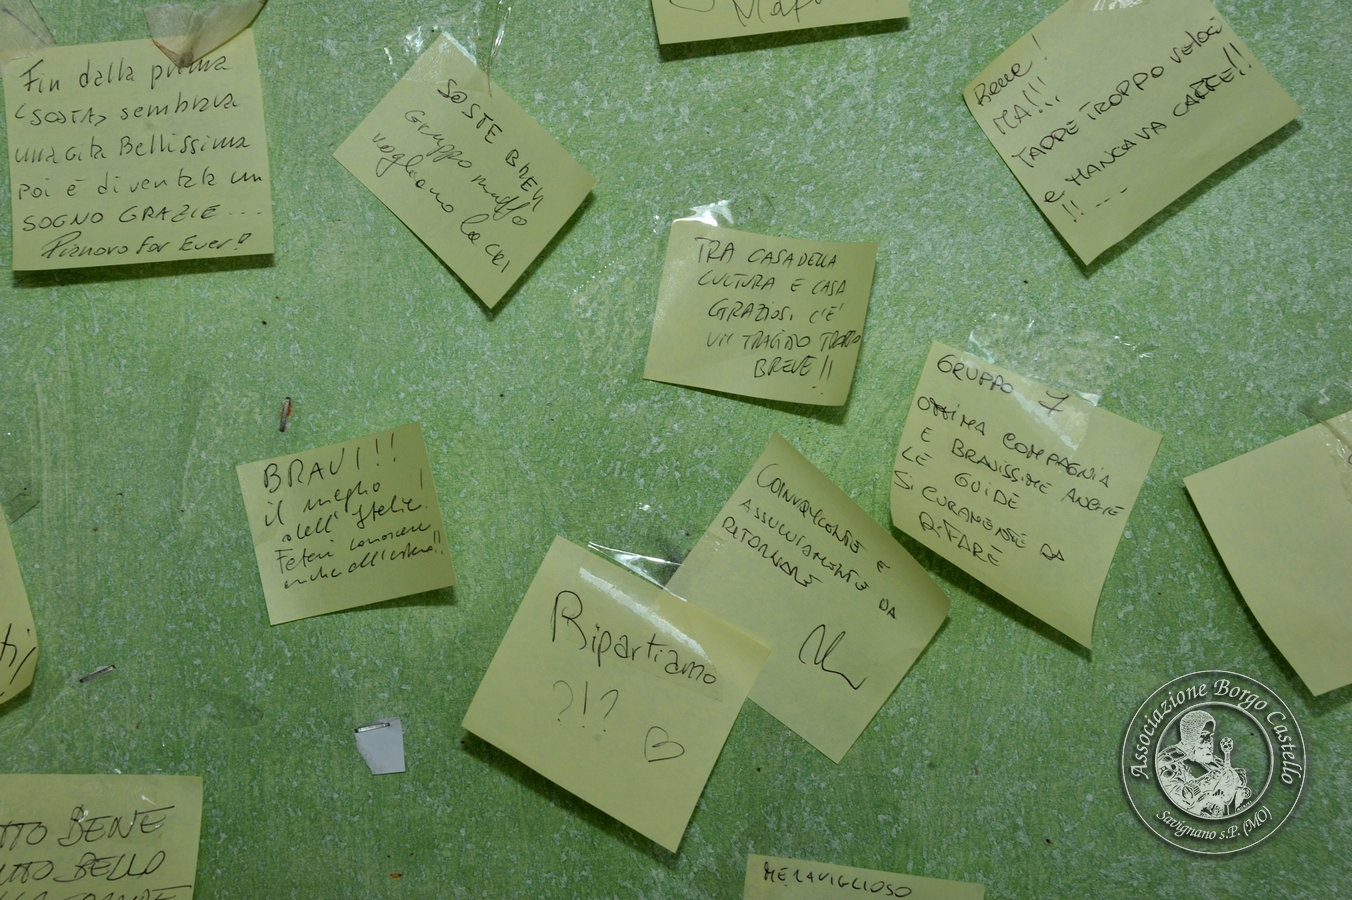 Fin dalla prima
<SOSTA> sembrava
una gita Bellissima
poi è diventata un
SOGNO GRAZIE....
Pianoro For Ever!
SOSTE BREVI
Gruppo muffo
vogliamo la CRI
Bene!
MA!!!
TAPPE TROPPO VELOCI
e MANCAVA CARTE!!
!!..
TRA CASA DELLA
CULTURA E CASA
GRAZIOSI C'È
UN TRAGITTO TROPPO
BREVE!!
GRUPPO 7
OTTIMA COMPAGNIA
E BRAVISSIME ANCHE
LE GUIDE
SICURAMENTE DA
RIFARE
BRAVI!!
il meglio
dell'Italia!
Fatevi conoscere
anche all'estero!!
COINVOLGENTE E
ASSOLUTAMENTE DA
RITORNARE
Ripartiamo
?!?
TTO BENE
TTO BELLO
MERAVIGLIOSO
Associazione Borgo Castello
Savignano s.P. (MO)